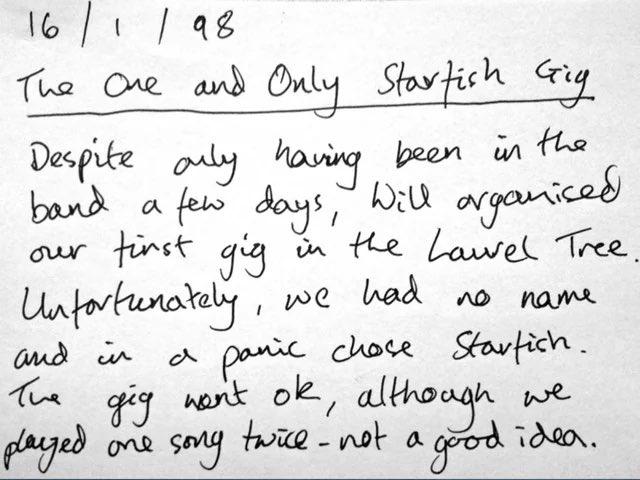 16/1/98
The One and Only Starfish Gig
Despite only having been in the
band a few days, Will organised
our first gig in the Laurel Tree.
Unfortunately, we had no name
and in a panic chose Starfish.
The gig went ok, although we
played one song twice - not a good idea.